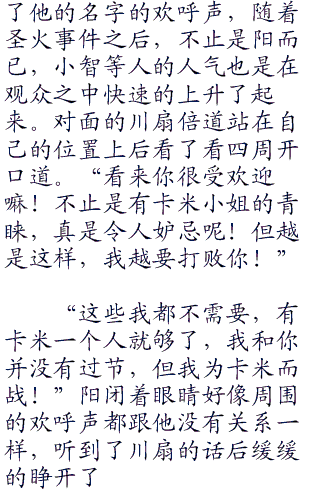 了他的名字的欢呼声，随着
圣火事件之后，不止是阳而
已，小智等人的人气也是在
观众之中快速的上升了起
来。对面的川扇倍道站在自
己的位置上后看了看四周开
口道。“看来你很受欢迎
嘛！不止是有卡米小姐的青
睐，真是令人妒忌呢！但越
是这样，我越要打败你！”
“这些我都不需要，有
卡米一个人就够了，我和你
并没有过节，但我为卡米而
战！”阳闭着眼睛好像周围
的欢呼声都跟他没有关系一
样，听到了川扇的话后缓缓
的睁开了